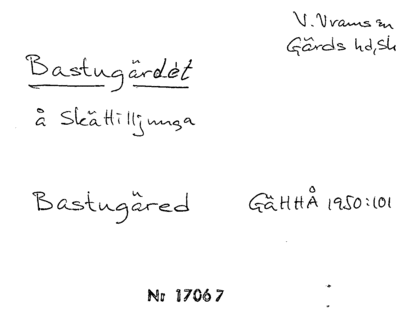 V. Vrams sn
Gärds hd, Sk
Bastugärdet
å Skättilljunga
Bastugäred GäHHÅ 1950:101
Nr 17067